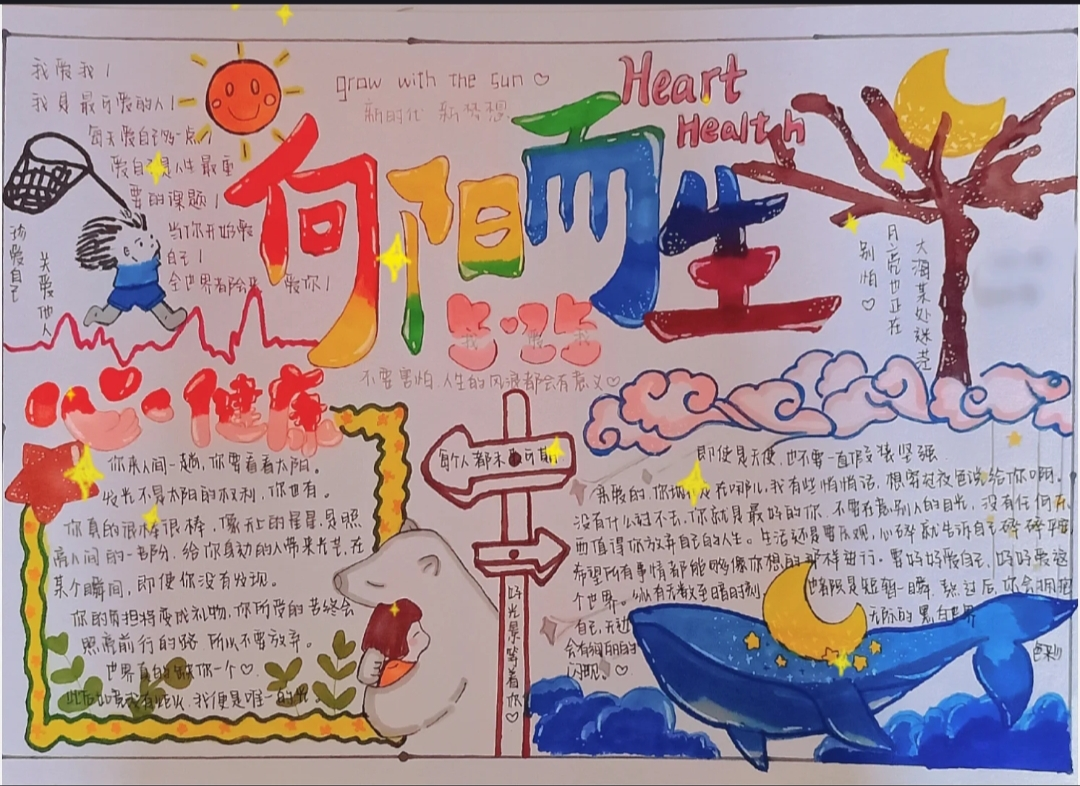 我爱我！
我是最可爱的人！
每天爱自己多一点！
爱自己是人生最重
要的课题！
当你开始爱
自己！
全世界都会来 爱你！
grow with the sun
新时代 新梦想
Heart
Health
向阳而生
5.25
我 爱 我
不要害怕.人生的风浪都会有意义
爱自己
关爱他人
别怕
月亮也正在
大海某处迷茫
心 健康
你来人间一趟，你要看看太阳。
发光不是太阳的权利，你也有。
你真的很棒很棒，像天上的星星，是照
亮人间的一部份，给你身边的人带来光芒，在
某个瞬间，即使你没有发现。
你的负担将变成礼物，你所受的苦终会
照亮前行的路，所以不要放弃。
世界真的就你一个
此后如竟没有炬火，我便是唯一的光。
每个人都未来可期
好光景等着你
即使是天使，也不要一直假装坚强
亲爱的，你现在在哪儿，我有些悄悄话，想穿过夜色说给你听。
没有什么过不去，你就是最好的你，不要在意别人的目光，没有任何东
西值得你放弃自己的人生。生活还是要乐观，心碎就告诉自己碎碎平安
希望所有事情都能够像你想的那样进行。要好好爱自己，好好爱这
个世界。纵有无数至暗时刻 也都只是短暂一瞬，熬过后，你会拥抱
自己，无边 无际的黑白世界
会有绚丽的 色彩
闪现。